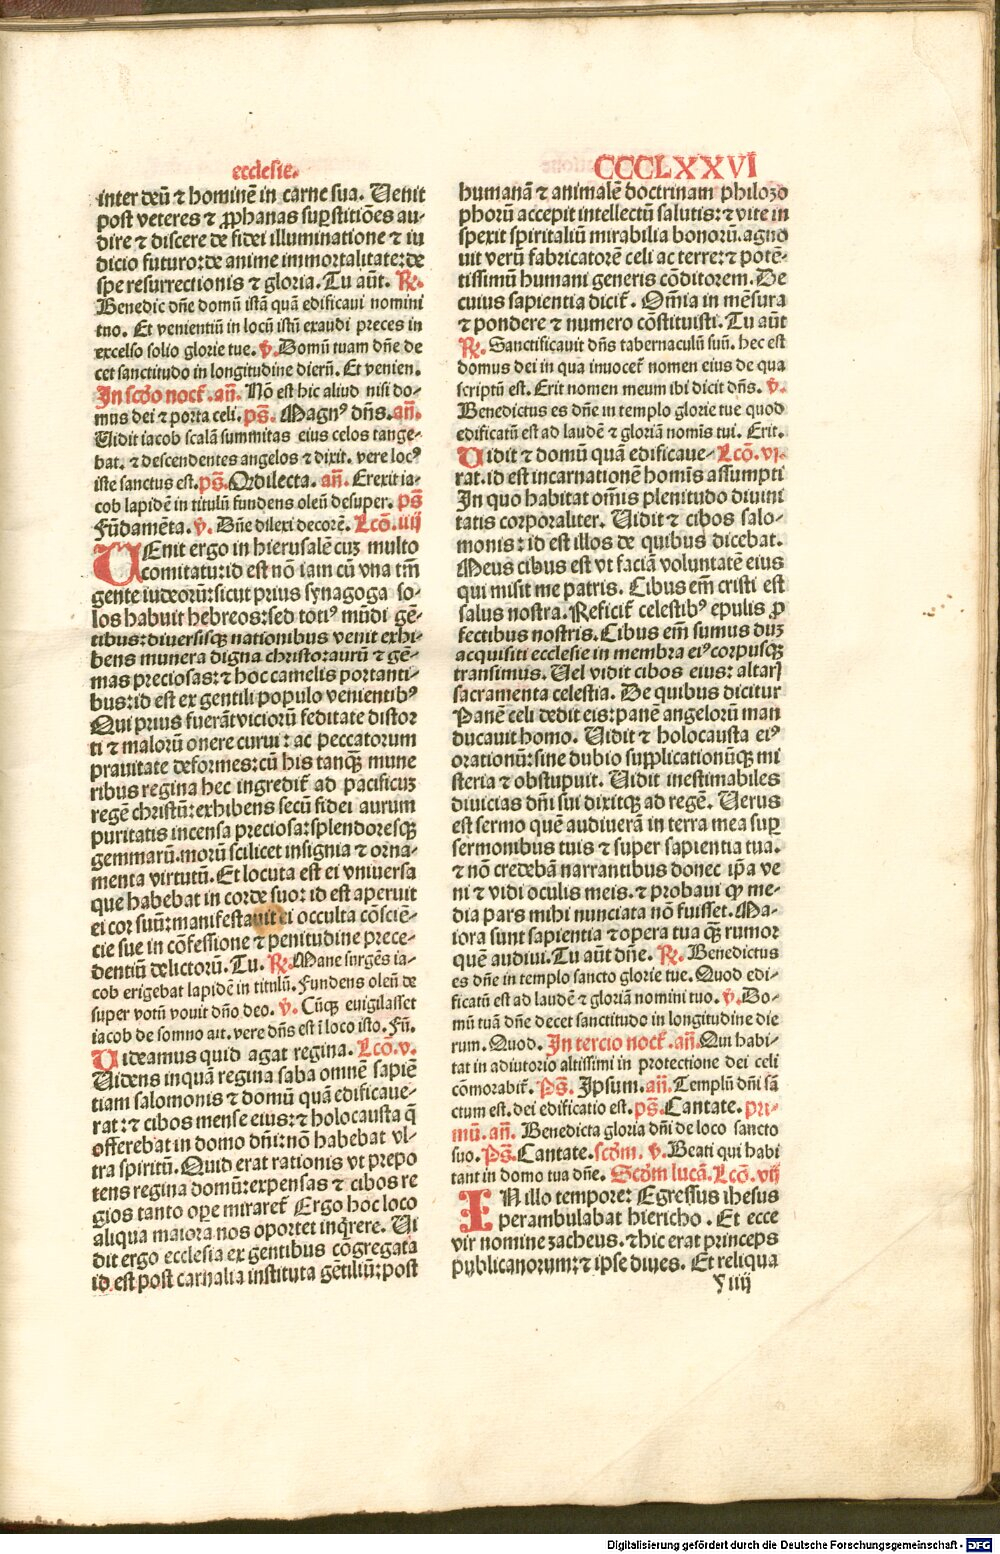 ecclesie.
CCCCLXXVI
inter deū ⁊ hominē in carne sua. Uenit
post veteres ⁊ ꝓphanas sup̱stitiões au-
dire ⁊ discere de fidei illuminatione ⁊ iu
dicio futuro: de anime immortalitate: de
spe resurrectionis ⁊ gloria. Tu aūt. ℞.
Benedic dñe domū istā quā edificaui nomini
tuo. Et venientiū in locū istū exaudi preces in
excelso solio glorie tue. ꝟ. Domū tuam dñe de
cet sanctitudo in longitudine dierū. Et venien.
In scđo nocť. añ. Nō est hic aliud nisi do-
mus dei ⁊ porta celi. ps̄. Magnꝰ dñs. añ.
Uidit iacob scalā summitas eius celos tange-
bat. ⁊ descendentes angelos ⁊ dixit. vere locꝰ
iste sanctus est. ps̄. Qđ dilecta. añ. Erexit ia-
cob lapidē in titulū fundens oleū desuper. ps̄
Fūdamēta. ꝟ. Dñe dilexi decorē. Lcō. iiij
UEnit ergo in hierusalē cuꝫ multo
comitatu: id est nō iam cū vna tm̄
gente iudeorū: sicut prius synagoga so-
los habuit hebreos: sed totiꝰ mūdi gē-
tibus: diuersisqꝫ nationibus venit exhi-
bens munera digna christo: aurū ⁊ gē-
mas preciosas: ⁊ hoc camelis portanti-
bus: id est ex gentili populo venientibꝰ
Qui prius fuerāt viciorū feditate distor
ti ⁊ malorū onere curui: ac peccatorum
prauitate deformes: cū his tanqꝫ mune
ribus regina hec ingredit̄ ad pacificuꝫ
regē christū: exhibens secū fidei aurum
puritatis incensa preciosa: splendoresqꝫ
gemmarū. morū scilicet insignia ⁊ orna-
menta virtutū. Et locuta est ei vniuersa
que habebat in corde suo: id est aperuit
ei cor suū: manifestauit ei occulta cōsciē-
cie sue in cōfessione ⁊ penitudine prece-
dentiū delictorū. Tu. ℞. Mane surgēs ia-
cob erigebat lapidē in titulū. Fundens oleū de
super votū vouit dño deo. ꝟ. Cūqꝫ euigilasset
iacob de somno ait. vere dñs est ī loco isto. Fū.
Uideamus quid agat regina. Lcō. v.
Uidens inquā regina saba omnē sapiē
tiam salomonis ⁊ domū quā edificaue-
rat: ⁊ cibos mense eius: ⁊ holocausta q̄
offerebat in domo dñi: nō habebat vl-
tra spiritū. Quid erat rationis vt prepo
tens regina domū: expensas ⁊ cibos re
gios tanto oꝑe mirareť Ergo hoc loco
aliqua maiora nos oportet inq̇rere. Ui
dit ergo ecclesia ex gentibus cōgregata
id est post carnalia instituta gētiliū: post
humanā ⁊ animalē doctrinam philozo
phorū accepit intellectū salutis: ⁊ vite in
spexit spiritaliū mirabilia bonorū. agno
uit verū fabricatorē celi ac terre: ⁊ potē-
tissimū humani generis cōditorem. De
cuius sapientia diciť. Om̄ia in mēsura
⁊ pondere ⁊ numero cōstituisti. Tu aūt
℞. Sanctificauit dñs tabernaculū suū. hec est
domus dei in qua inuoceť nomen eius de qua
scriptū est. Erit nomen meum ibi dicit dñs. ꝟ.
Benedictus es dñe in templo glorie tue quod
edificatū est ad laudē ⁊ gloriā nomīs tui. Erit.
Uidit ⁊ domū quā edificaue- Lcō. vi.
rat. id est incarnationē homīs assumpti
In quo habitat om̄is plenitudo diuini
tatis corporaliter. Uidit ⁊ cibos salo-
monis: id est illos de quibus dicebat.
Meus cibus est vt faciā voluntatē eius
qui misit me patris. Cibus em̄ cristi est
salus nostra. Reficiť celestibꝰ epulis ꝓ
fectibus nostris. Cibus em̄ sumus duꝫ
acquisiti ecclesie in membra eiꝰ corpusqꝫ
transimus. Uel vidit cibos eius: altarꝭ
sacramenta celestia. De quibus dicitur
Panē celi dedit eis: panē angelorū man
ducauit homo. Uidit ⁊ holocausta eiꝰ
orationū: sine dubio supplicationūqꝫ mi
steria ⁊ obstupuit. Uidit inestimabiles
diuicias dñi sui dixitqꝫ ad regē. Uerus
est sermo quē audiuerā in terra mea suꝑ
sermonibus tuis ⁊ super sapientia tua.
⁊ nō credebā narrantibus donec ip̄a ve
ni ⁊ vidi oculis meis. ⁊ probaui ꝙ me-
dia pars mihi nunciata nō fuisset. Ma-
iora sunt sapientia ⁊ opera tua qꝫ rumor
quē audiui. Tu aūt dñe. ℞. Benedictus
es dñe in templo sancto glorie tue. Quod edi-
ficatū est ad laudē ⁊ gloriā nomini tuo. ꝟ. Do-
mū tuā dñe decet sanctitudo in longitudine die
rum. Quod. In tercio nocť. añ. Qui habi-
tat in adiutorio altissimi in protectione dei celi
cōmorabiť. Ps̄. Ipsum. añ. Templū dñi sā
ctum est. dei edificatio est. ps̄. Cantate. pri-
mū. añ. Benedicta gloria dñi de loco sancto
suo. Ps̄. Cantate. scđm. ꝟ. Beati qui habi
tant in domo tua dñe. Scđm lucā. Lcō. vij
IN illo tempore: Egressus ihesus
perambulabat hiericho. Et ecce
vir nomine zacheus. ⁊ hic erat princeps
publicanorum: ⁊ ipse diues. Et reliqua
Y iiij
Digitalisierung gefördert durch die Deutsche Forschungsgemeinschaft - DFG